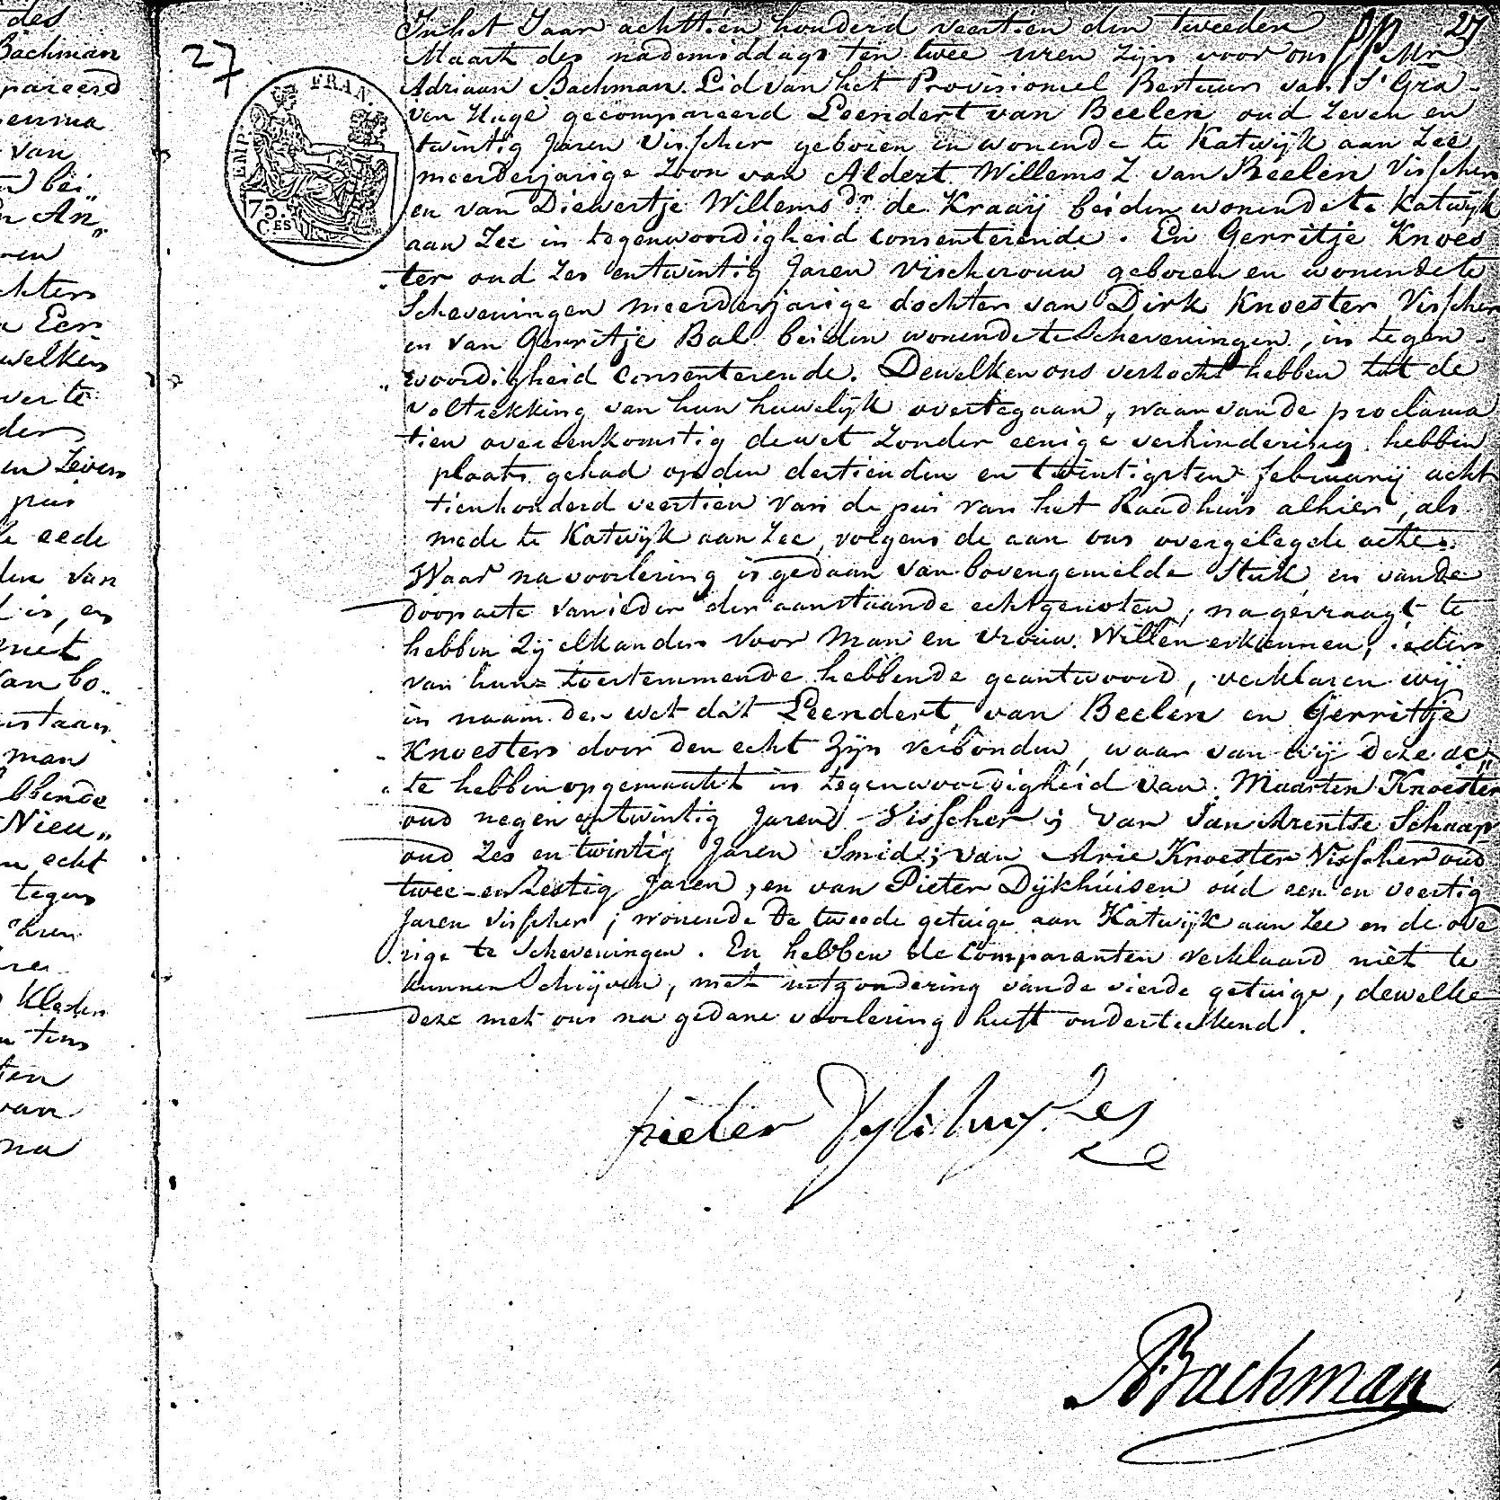 des
Bachman
pareerd
van
bei„
An„
oen
chters
Eer
welken
ver te
ders
en Zeven
pui
eede
den van
is, en
met
van bo„
man
bbende
Nieu„
echt
tegen
Kleden
ten
van
na
27
FRAN.
EMP.
75.
CES
27
In het Jaar achttien honderd veertien den tweeden
Maart des nademiddags ten twee uren Zijn voor ons Mr
Adriaan Bachman Lid van het Provisioneel Bestuur van S' Gra-
ven Hage gecompareerd Leendert van Beelen oud Zeven en
twintig Jaren Visscher geboren en wonende te Katwijk aan Zee
meerderjarige Zoon van Aldert Willems Z. van Beelen Visscher
en van Diewertje Willems dr de Kraaij beiden wonende te Katwijk
aan Zee in tegenwoordigheid consenterende. En Gerritje Knoes
ter oud Zes en twintig Jaren Vischvrouw geboren en wonende te
Scheveningen meerderjarige dochter van Dirk Knoester Visscher
en van Gerritje Bal beiden wonende te Scheveningen, in tegen-
woordigheid consenterende. Dewelken ons versocht hebben tot de
voltrekking van hun huwelijk overtegaan, waar van de proclama
tien overeenkomstig de wet Zonder eenige verhindering hebben
plaats gehad op den dertienden en twintigsten februarij acht
tienhonderd veertien van de pui van het Raadhuis alhier, als
mede te Katwijk aan Zee, volgens de aan ons overgelegde acte.
Waar na voorlezing is gedaan van bovengemelde Stuk en van de
Doopacte van ieder der aanstaande echtgenoten, na gevraagt te
hebben Zij elkander Voor Man en Vrouw Willen erkennen, ieder
van hun toestemmende hebbende geantwoord, verklaren wij
in naam der wet dat Leendert van Beelen en Gerritje
Knoester door den echt Zijn verbonden, waar van wij deze ac„
te hebben opgemaakt in tegenwoordigheid van Maarten Knoester
oud negen en twintig Jaren Visscher; van Jan Arentse Schaap
oud Zes en twintig Jaren Smid; van Arie Knoester Visscher oud
twee en Zestig Jaren, en van Pieter Dijkhuisen oud een en veertig
Jaren Visscher; wonende de tweede getuige aan Katwijk aan Zee en de ove
rige te Scheveningen. En hebben de Comparanten verklaard niet te
kunnen Schrijven, met uitzondering van de vierde getuige, dewelke
deze met ons na gedane voorlezing heeft onderteekend.
pieter
ABachman